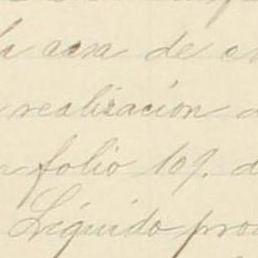 la casa de
realización
folio 109. d
Líquido prod